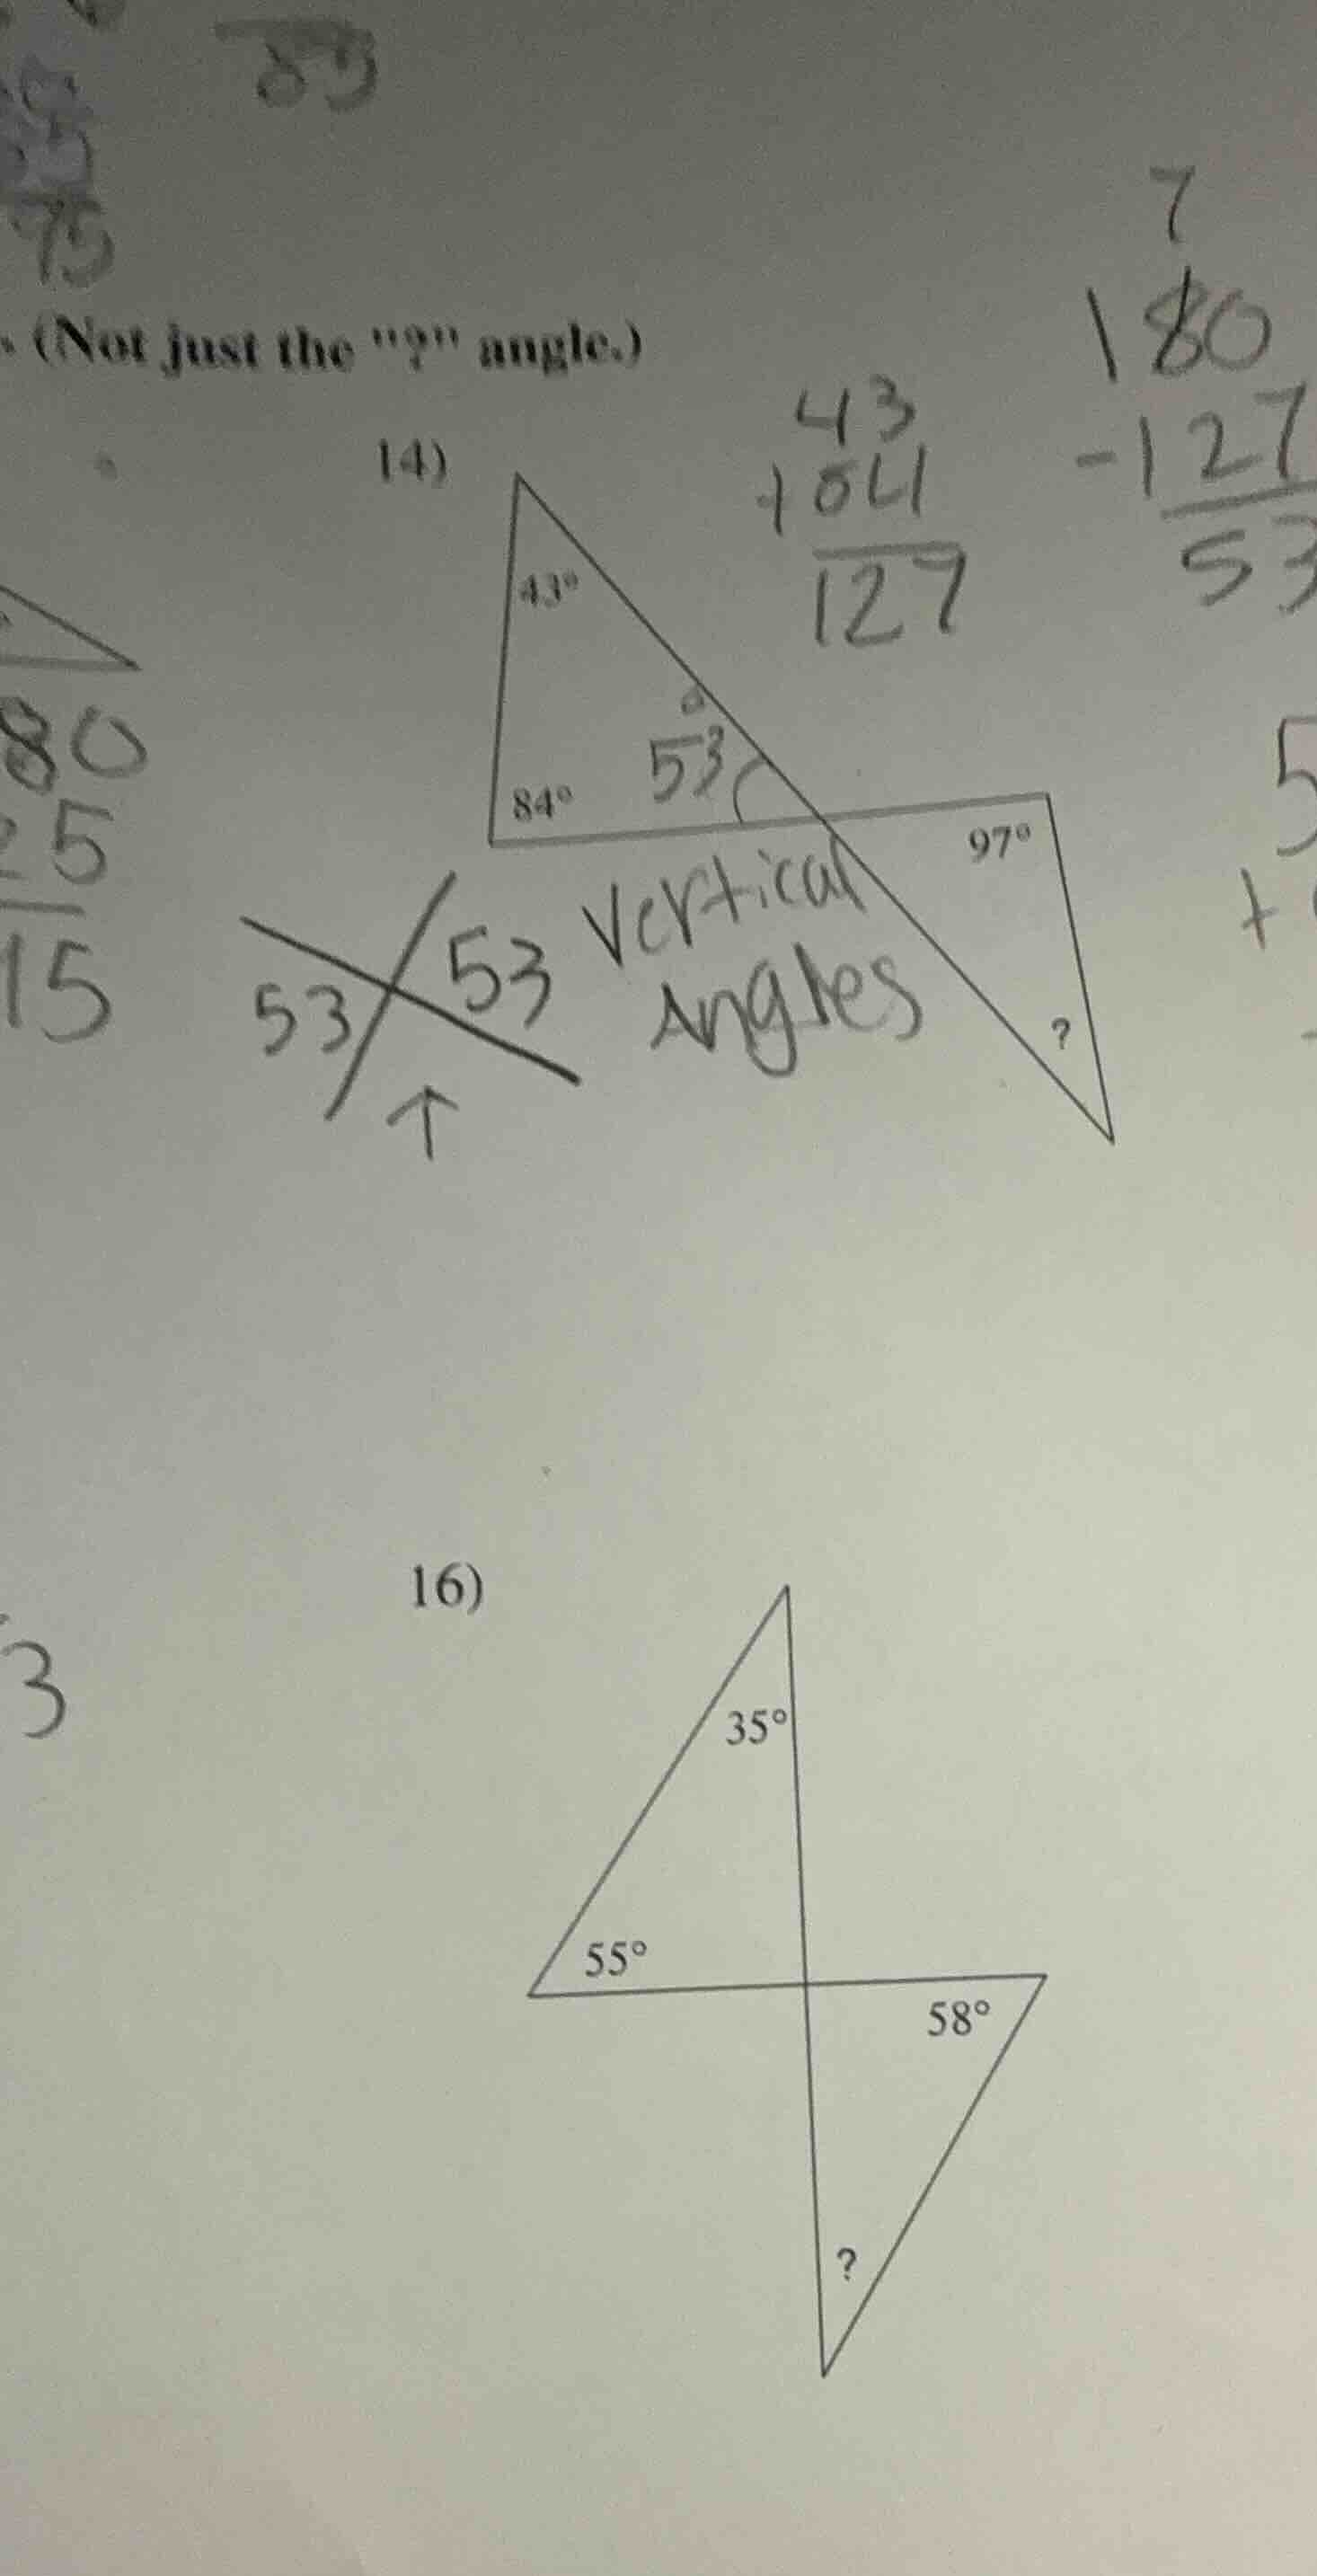 75
(Not just the "?" angle.)
7
180
-127
53
14)
43
+84
127
43°
53°
84°
97°
?
80
25
15
vertical
Angles
53 53
↑
5
+
16)
3
35°
55°
58°
?